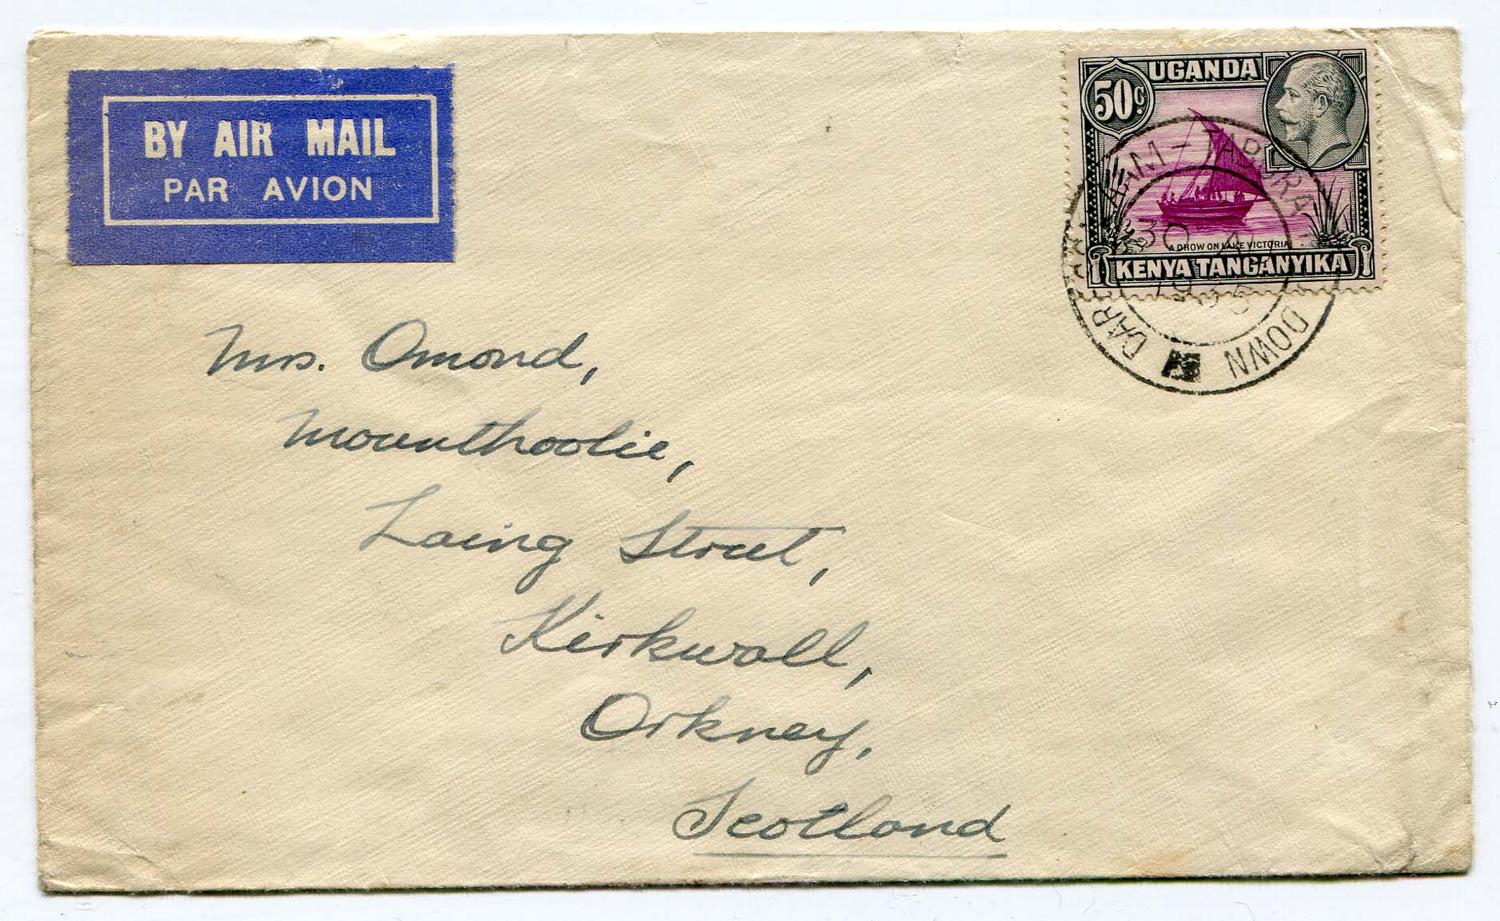 BY AIR MAIL
PAR AVION
UGANDA
50c.
A DHOW ON LAKE VICTORIA
KENYA TANGANYIKA
DAR-ES-SALAAM-TABORA T.P.O. DOWN
30
1935
Mrs. Omond,
Mounthoolie,
Laing Street,
Kirkwall,
Orkney,
Scotland